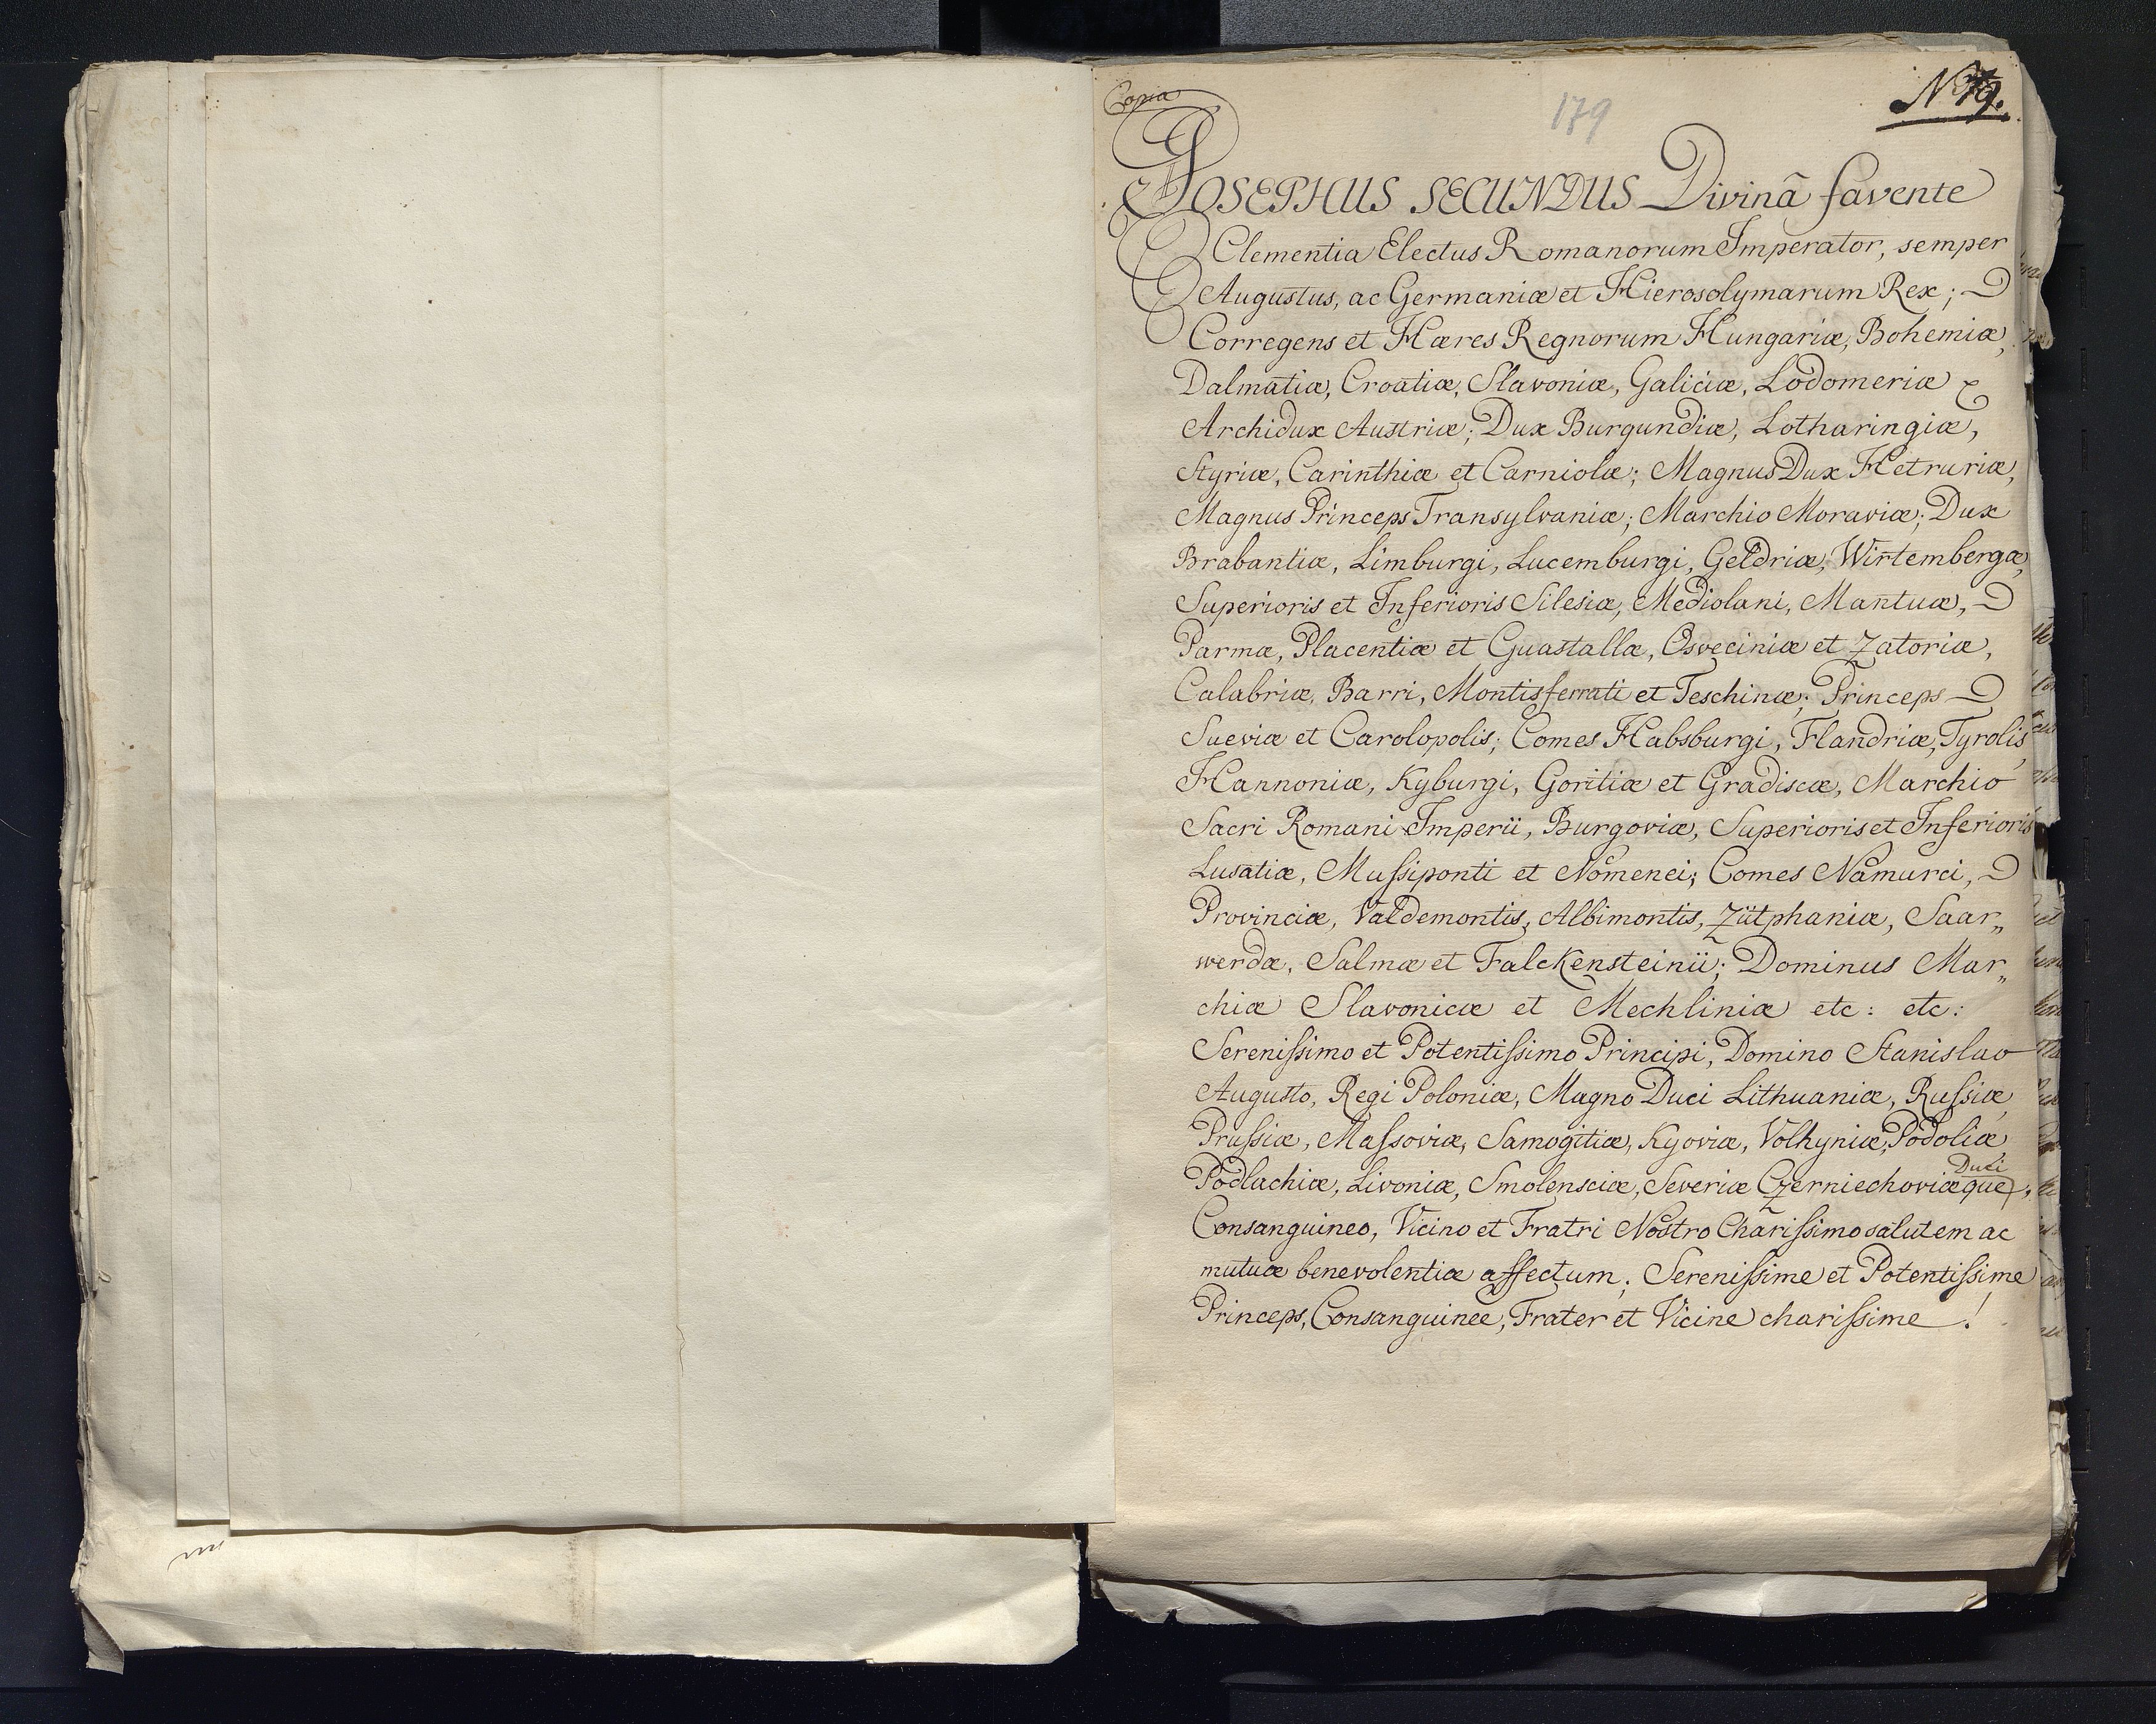 Copia
179
N 19.
JOSEPHUS SECUNDUS Divinâ favente
Clementia Electus Romanorum Imperator, semper
Augustus, ac Germaniæ et Hierosolymarum Rex;
Corregens et Hæres Regnorum Hungariæ, Bohemiæ,
Dalmatiæ, Croatiæ, Slavoniæ, Galiciæ, Lodomeriæ
Archidux Austriæ; Dux Burgundiæ, Lotharingiæ,
Styriæ, Carinthiæ et Carniolæ; Magnus Dux Hetruriæ,
Magnus Princeps Transylvaniæ; Marchio Moraviæ; Dux
Brabantiæ, Limburgi, Lucemburgi, Geldriæ, Wirtembergæ,
Superioris et Inferioris Silesiæ, Mediolani, Mantuæ,
Parmæ, Placentiæ et Guastallæ, Osveciniæ et Zatoriæ,
Calabriæ, Barri, Montisferrati et Teschinæ; Princeps
Sueviæ et Carolopolis; Comes Habsburgi, Flandriæ, Tyrolis,
Hannoniæ, Kyburgi, Goritiæ et Gradiscæ, Marchio
Sacri Romani Imperii, Burgoviæ, Superioris et Inferioris
Lusatiæ, Mussiponti et Nomenei; Comes Namurci,
Provinciæ, Valdemontis, Albimontis, Zütphaniæ, Saar„
werdæ, Salmæ et Falckensteinii; Dominus Mar„
chiæ Slavonicæ et Mechliniæ etc: etc:
Serenissimo et Potentissimo Principi, Domino Stanislao
Augusto, Regi Poloniæ, Magno Duci Lithuaniæ, Russiæ,
Prussiæ, Massoviæ, Samogitiæ, Kyoviæ, Volhyniæ, Podoliæ,
Podlachiæ, Livoniæ, Smolensciæ, Severiæ Czerniechoviæque Duci,
Consanguineo, Vicino et Fratri Nostro Charissimo salutem ac
mutuæ benevolentiæ affectum; Serenissime et Potentissime
Princeps, Consanguinee, Frater et Vicine charissime !